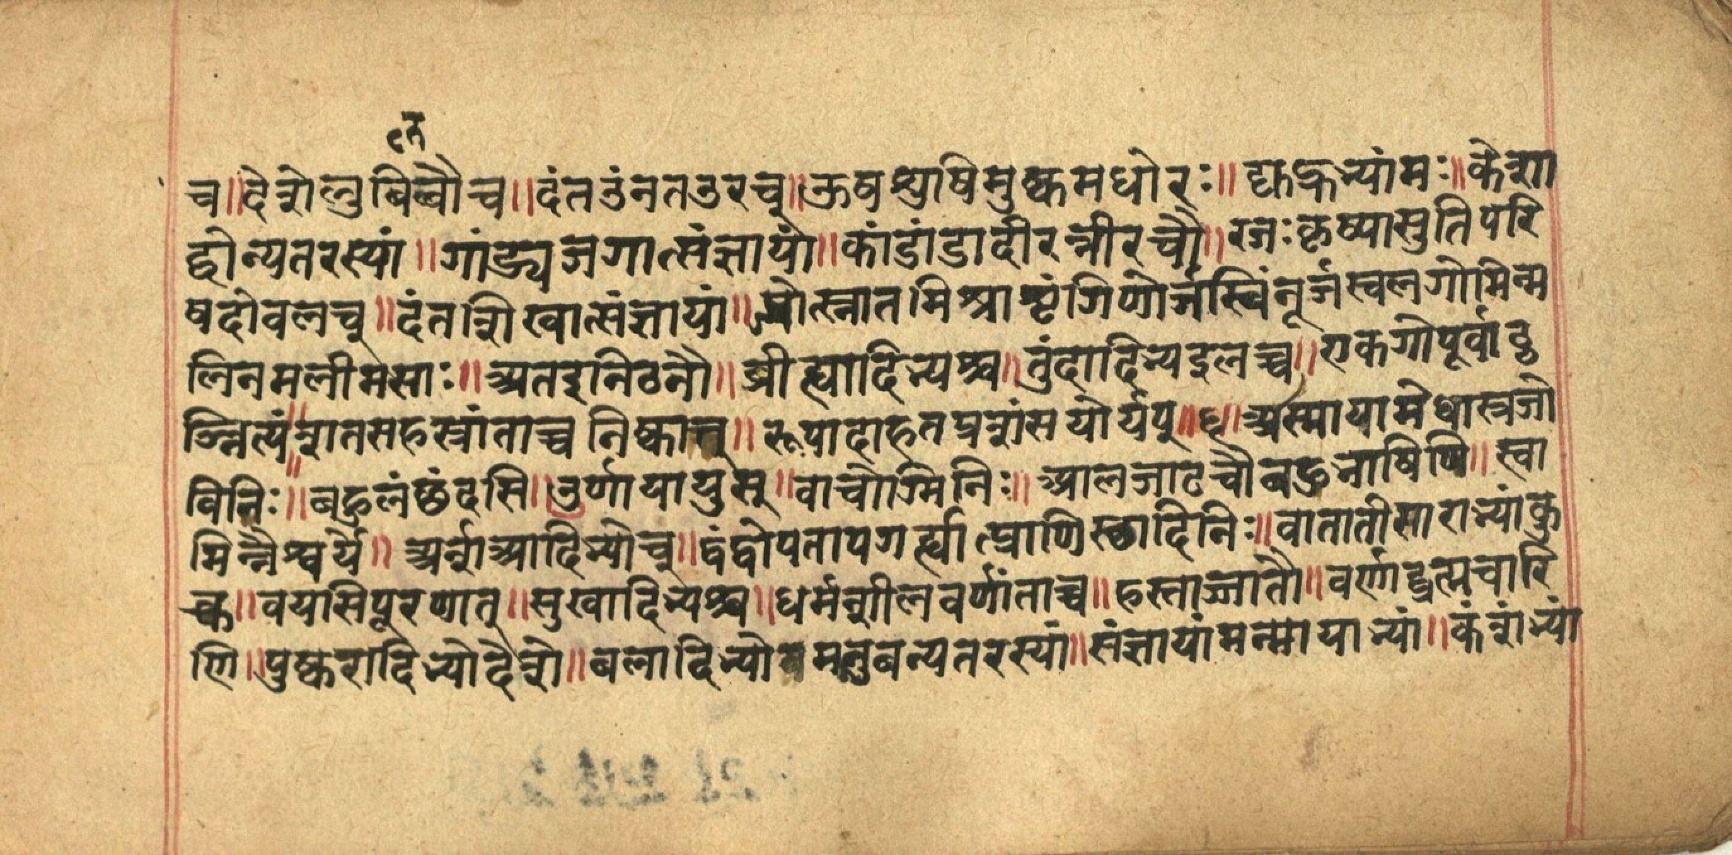 त
च॥देशेलुबिलचौच॥दंतउंनतउरच्॥ऊषशुषिमुष्कमधोरः॥द्युद्रुभ्यांमः॥केशा
द्वोन्यतरस्यां॥गांड्यजगात्संज्ञायां॥कांडांडादीरन्नीरचौ॥रजःकृष्यासुतिपरि
षदोवलच्॥दंतशिखात्संज्ञायां॥ज्योत्स्नातमिश्राशृंगिणोर्जस्विंनूर्जस्वलगोमिन्म
लिनमलीमसाः॥अतइनिठनौ॥व्रीह्यादिभ्यश्च॥तुंदादिभ्यइलच्च॥एकगोपूर्वाठ्ठ
ञ्नित्यं॥शतसहस्रांताच्चनिष्कात्॥रूपादाहतप्रशंसयोर्यप्॥५॥अस्मायामेधास्रजो
विनिः॥बहुलंछंदसि॥ऊर्णायायुस्॥वाचोग्मिनिः॥आलजाटचौबहुभाषिणि॥स्वा
मिन्नैश्वर्ये॥अर्शआदिभ्योच्॥द्वंद्वोपतापगर्ह्यात्प्राणिस्छादिनिः॥वातातीसाराभ्यांकु
क्च॥वयसिपूरणात्॥सुखादिभ्यश्च॥धर्मशीलवर्णांताच्च॥हस्ताज्जातौ॥वर्णाद्ब्रह्मचारि
णि॥पुष्करादिभ्योदेशे॥बलादिभ्योमतुबन्यतरस्यां॥संज्ञायांमन्माभ्यां॥कंशंभ्यां